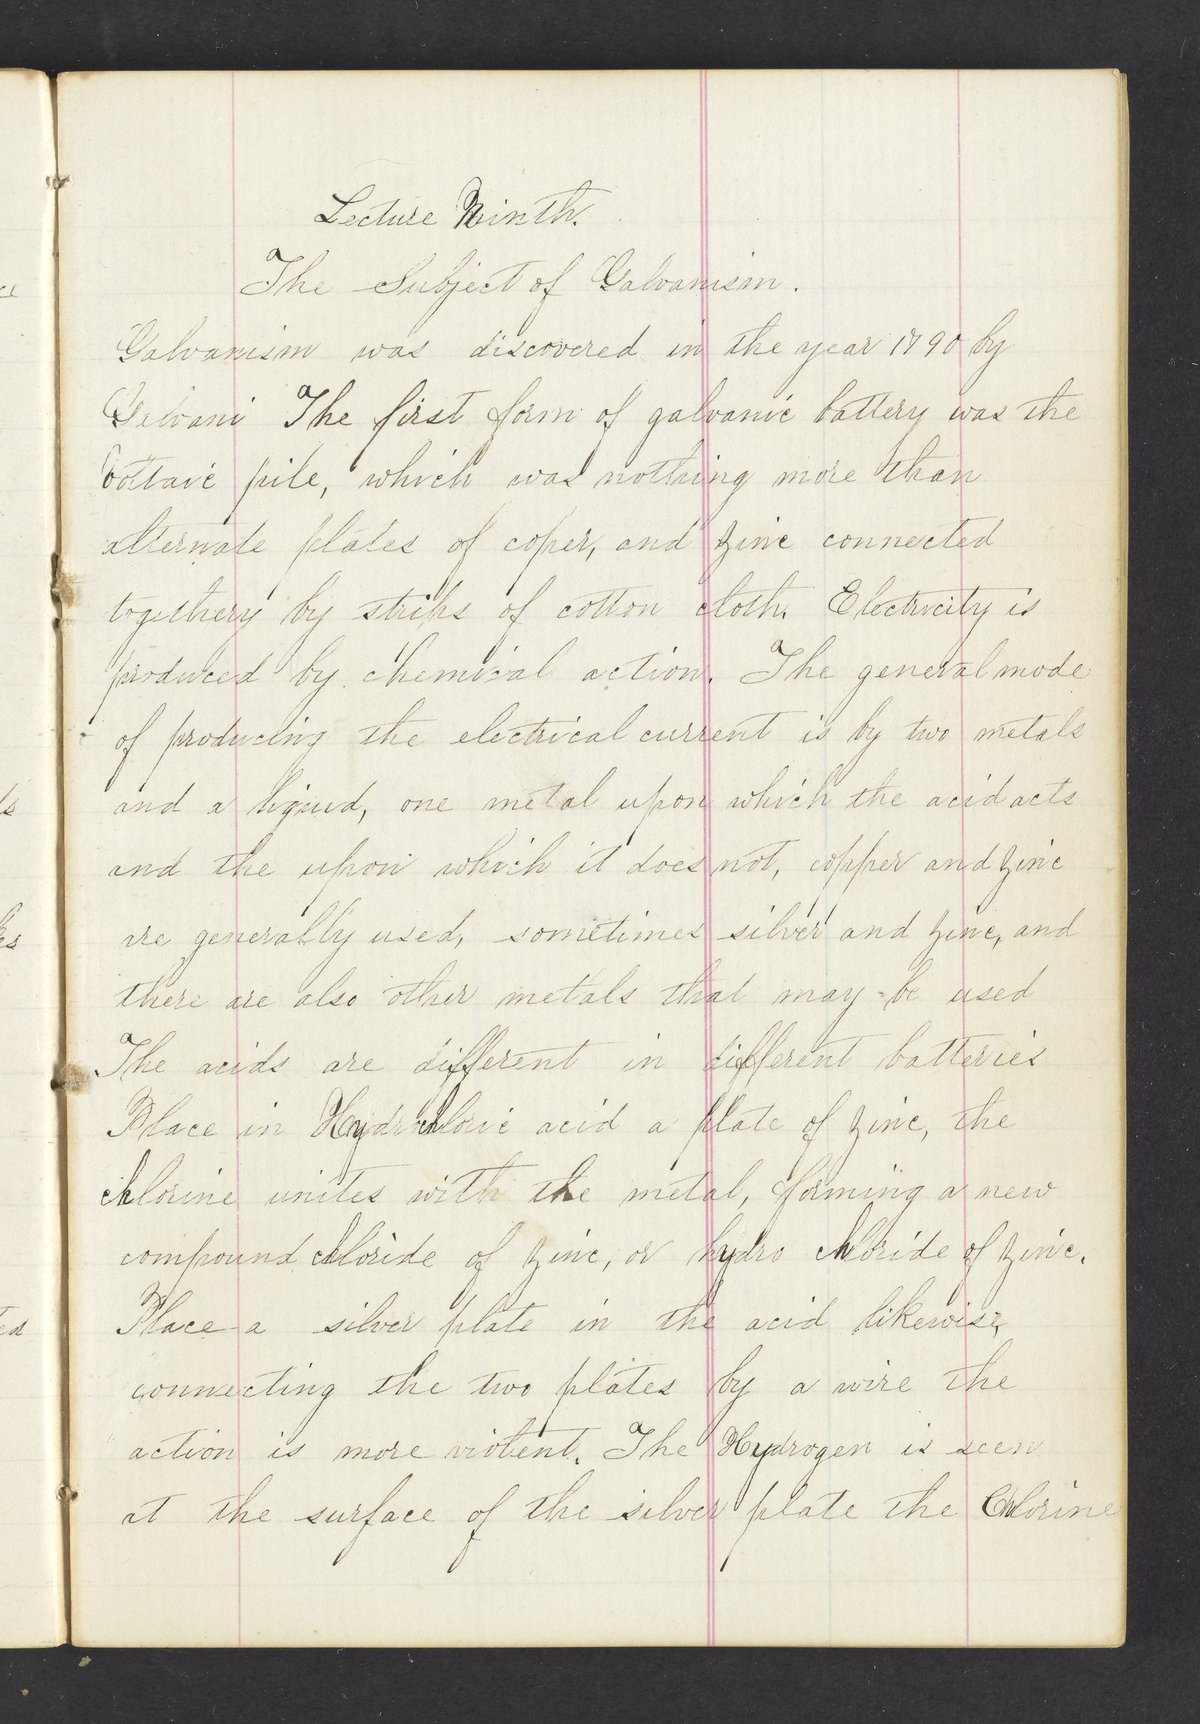 Lecture Ninth.
The Subject of Galvanism.
Galvanism was discovered in the year 1790 by
Gelvani The first form of galvanic battery was the
voltaic pile, which was nothing more than
alternate plates of coper, and zinc connected
together by strips of cotton cloth. Electricity is
produced by chemical action. The general mode
of producing the electrical current is by two metals
and a liquid, one metal upon which the acid acts
and the upon which it does not, copper and zinc
are generally used, sometimes silver and zinc, and
there are also other metals that may be used
The acids are different in different batteries
Place in Hydrchloric acid a plate of zinc, the
chlorine unites with the metal, forming a new
compound chloride of zinc, or hydro chloride of zinc.
Place a silver plate in the acid likewise,
connecting the two plates by a wire the
action is more violent. The Hydrogen is seen
at the surface of the silver plate the Chlorine